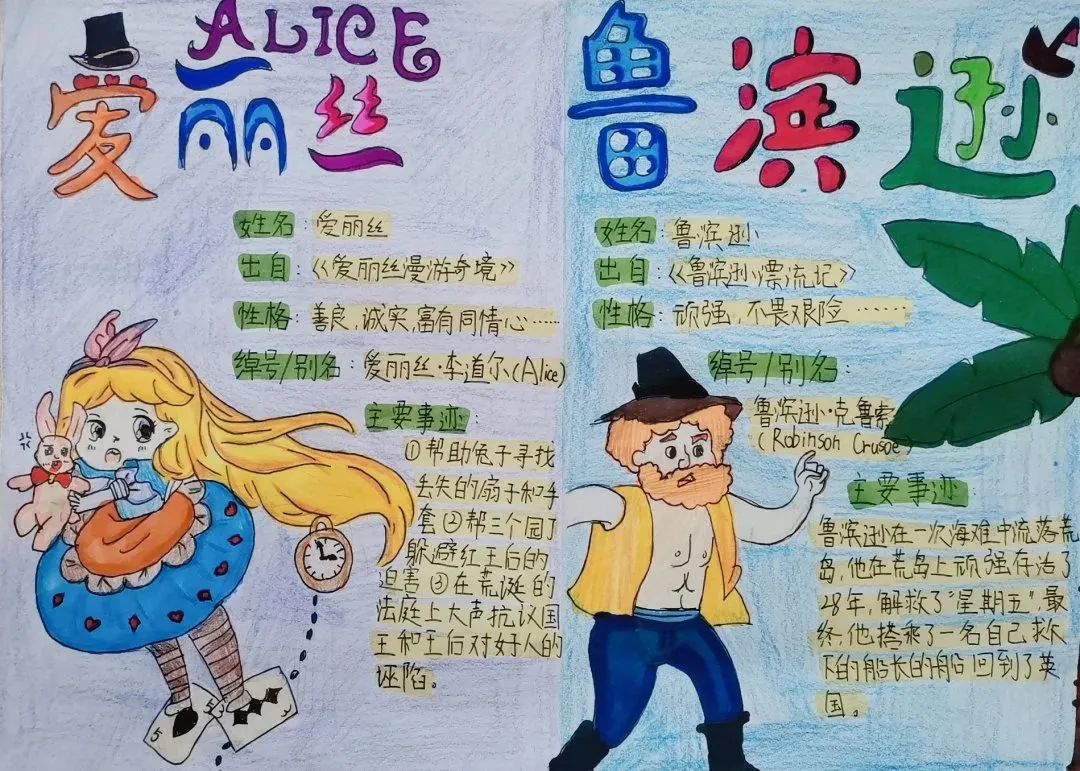 ALICE
爱丽丝
姓名：爱丽丝
出自：《爱丽丝漫游奇境》
性格：善良，诚实，富有同情心……
绰号/别名：爱丽丝·李道尔(Alice)
主要事迹：
①帮助兔子寻找
丢失的扇子和手
套②帮三个园丁
躲避红王后的
迫害③在荒诞的
法庭上大声抗议国
王和王后对好人的
诬陷。
5
鲁滨逊
姓名：鲁滨逊
出自：《鲁滨逊漂流记》
性格：顽强，不畏艰险……
绰号/别名：
鲁滨逊·克鲁索
(Robinson Crusoe)
主要事迹：
鲁滨逊在一次海难中流落荒
岛，他在荒岛上顽强存活了
28年，解救了“星期五”，最
终，他搭乘了一名自己救
下的船长的船回到了英
国。